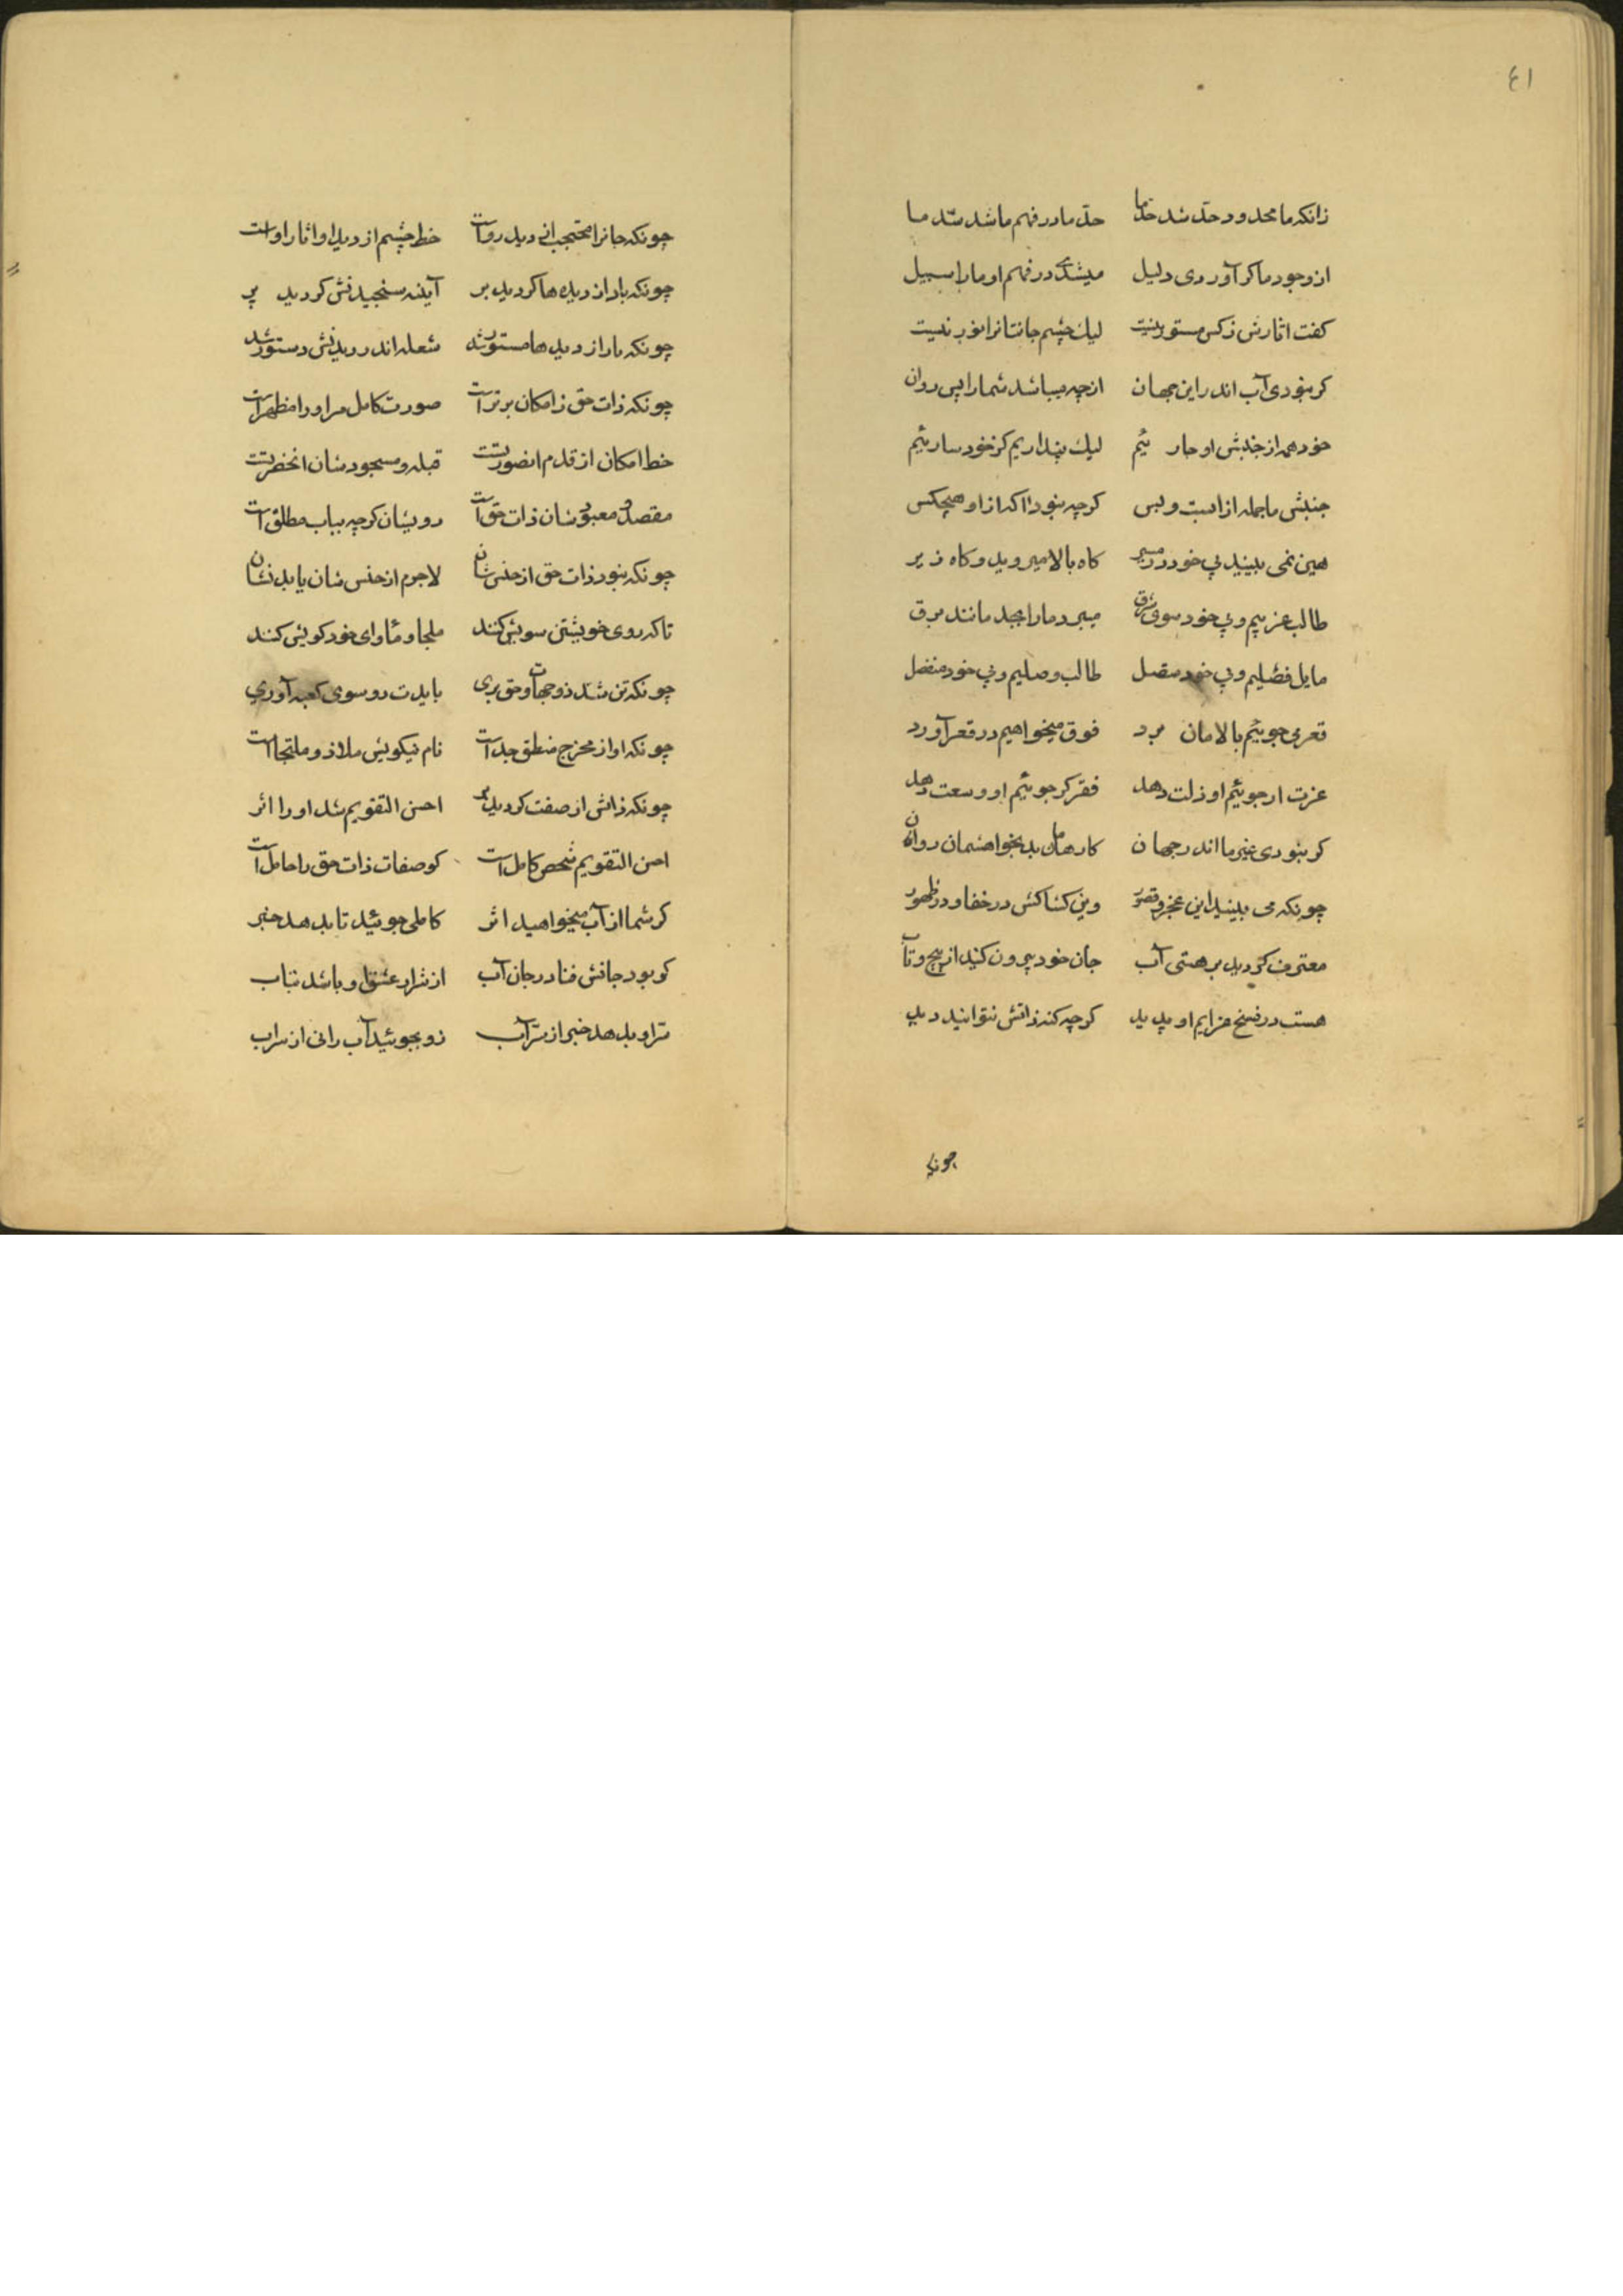 ٤١
زانکه ما محدود و حدّ شد حدّ ما حدّ ما در فهم ما شد سدّ ما
از وجود ما کر آوردی دلیل میشدی در فهم او ما را سبیل
کفت اثارش ز کس مستور نیست لیک چشم جانتانرا نور نیست
کر نبودی آب اندر این جهان از چه میباشد شما را پس روان
خود همه از جنبش او جار ئیم لیک پنداریم کز خود سارئیم
جنبش ما جمله از است و بس کرچه نبود اکه از او هیچکس
هین نمی بینید بی خود در مسیر کاه بالا میروید و کاه زیر
طالب غربیم و بی خود سوی شرق میبرد ما را بجد مانند برق
مایل فصلیم و بی خود متصل طالب وصلیم و بی خود منفصل
قعر می جوئیم بالامان برد فوق میخواهیم در قعر آورد
عزت ار جوئیم او ذلت دهد فقر کر جوئیم او وسعت دهد
کر نبودی غیر ما اندر جهان کارهامان بد بخواهشمان روان
چونکه می بینید این عجز و قصور وین کشاکش در خفا و در ظهور
معترف کردید بر هستی آب جان خود بیرون کنید از پیچ و تاب
هست در فسخ عزایم او پدید کرچه کنه ذاتش نتوانید دید
چونکه
چونکه جانرا محتجب انی دید رواست خط چشم از دید او اثار اوست
چونکه باد از دیده ها کردید بر آینه سنجیدنش کردید پر
چونکه نار از دیدها مستور شد شعله اندر دیدنش دستور شد
چونکه ذات حق ز امکان برتر است صورت کامل مر او را مظهر است
خط امکان از قدم انصورتست قبله و مسجود شان انحضرتست
مقصد و معبود شان ذات حق است رویشان کرچه بباب مطلق است
چونکه نبود ذات حق از جنس شان لاجرم از جنس شان یابد نشان
تا که روی خویشتن سویش کنند ملجا و مأوای خود کویش کنند
چونکه تن شد ذو جهات و حق بری بایدت رو سوی کعبه آوری
چونکه او از مخرج منطق جداست نام نیکویش ملاذ و ملتجا است
چونکه ذاتش از صفت کردید بر احسن التقویم شد او را اثر
احسن التقویم شخص کامل است کو صفات ذات حق را حامل است
کر شما از آب میخواهید اثر کاملی جوئید تا بدهد خبر
کو بود جانش فنا در جان آب از شرار عشق او باشد بتاب
تر او بدهد خبر از سرّ آب زو بجوئید آب رانی از سراب